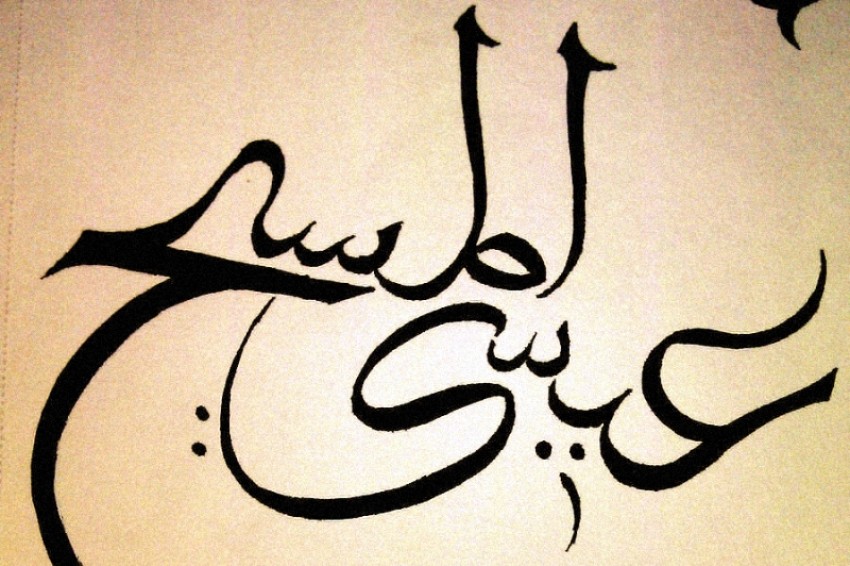 عيسى المسيح